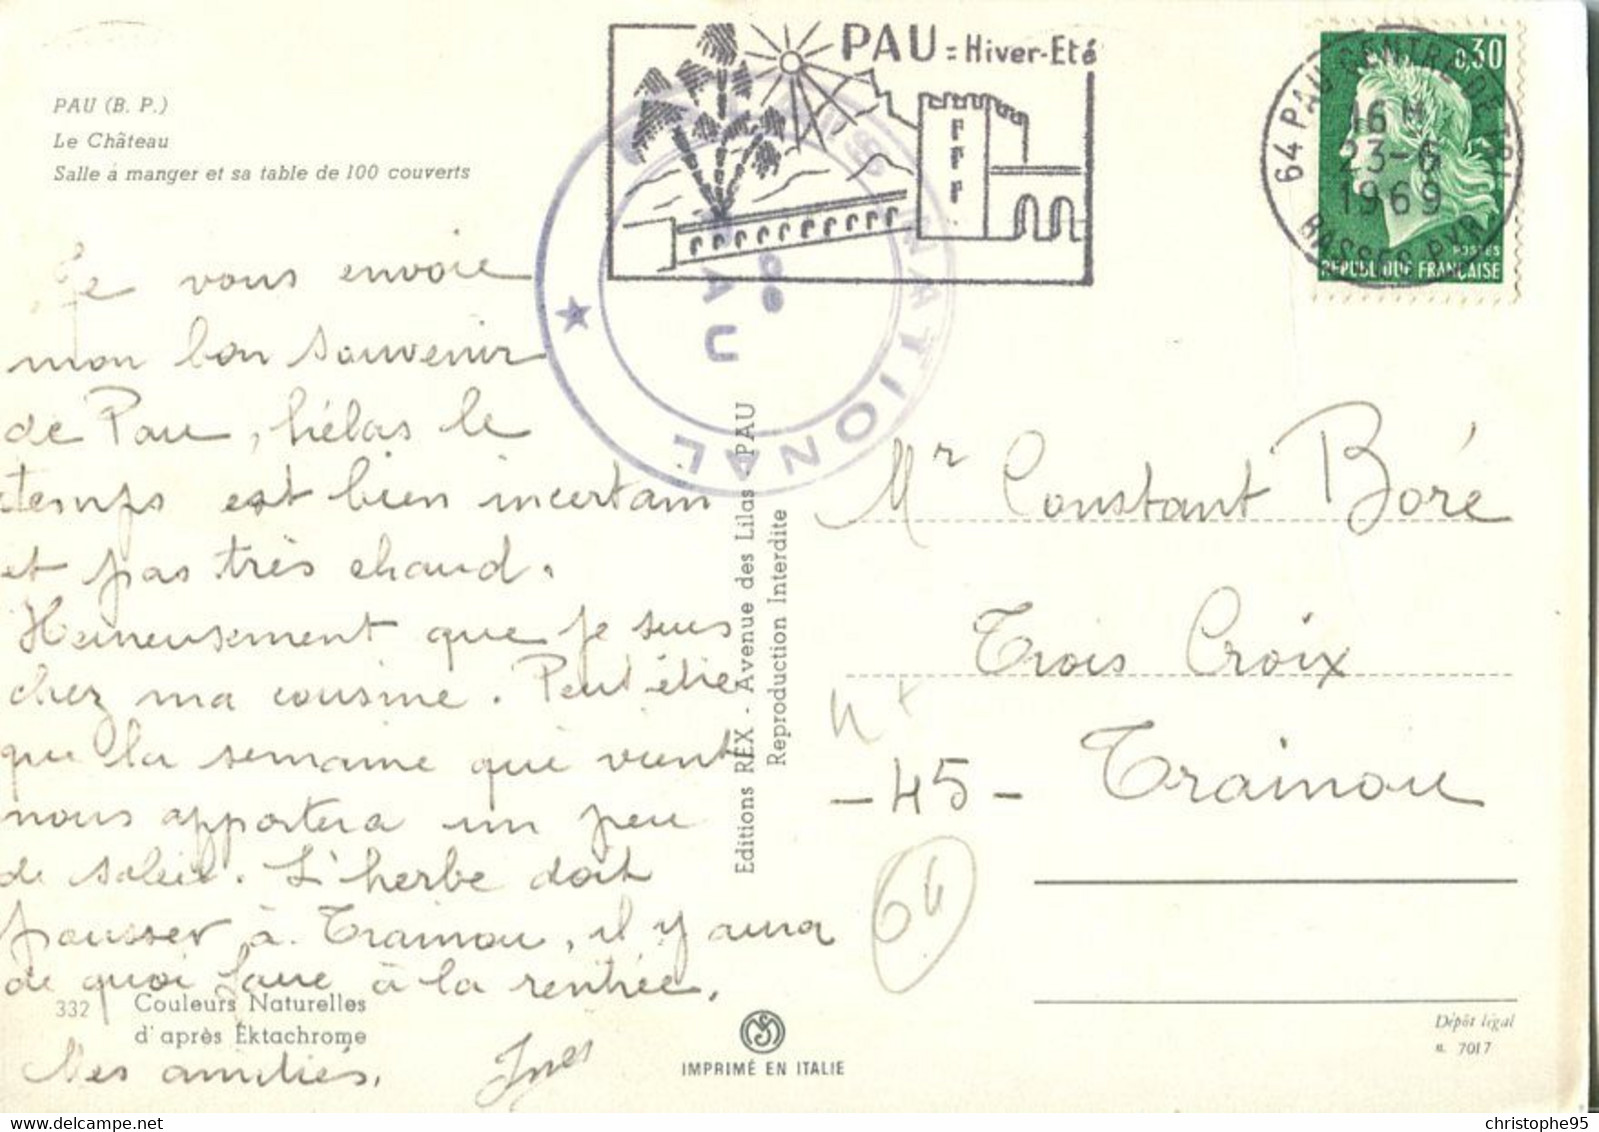 PAU (B. P.)
Le Château
Salle à manger et sa table de 100 couverts
PAU = Hiver-Eté
0,30
64 PAU CENTRE DE TRI
16 H
23-6
1969
BASSES PYR.
POSTES
REPUBLIQUE FRANÇAISE
NATIONAL
PAU
Je vous envoie
mon bon souvenir
de Pau, hélas le
temps est bien incertain
et pas très chaud.
Heureusement que je suis
chez ma cousine. Peut être
que la semaine qui vient
nous apportera un peu
de soleil. L'herbe doit
pousser à Trainou, il y aura
de quoi faire à la rentrée.
Mes amitiés.
Ines
Editions REX - Avenue des Lilas - PAU
Reproduction Interdite
Mr Constant Boré
Trois Croix
- 45 - Trainou
64
332
Couleurs Naturelles
d'après Ektachrome
IMPRIMÉ EN ITALIE
Dépôt légal
n. 7017
christophe95